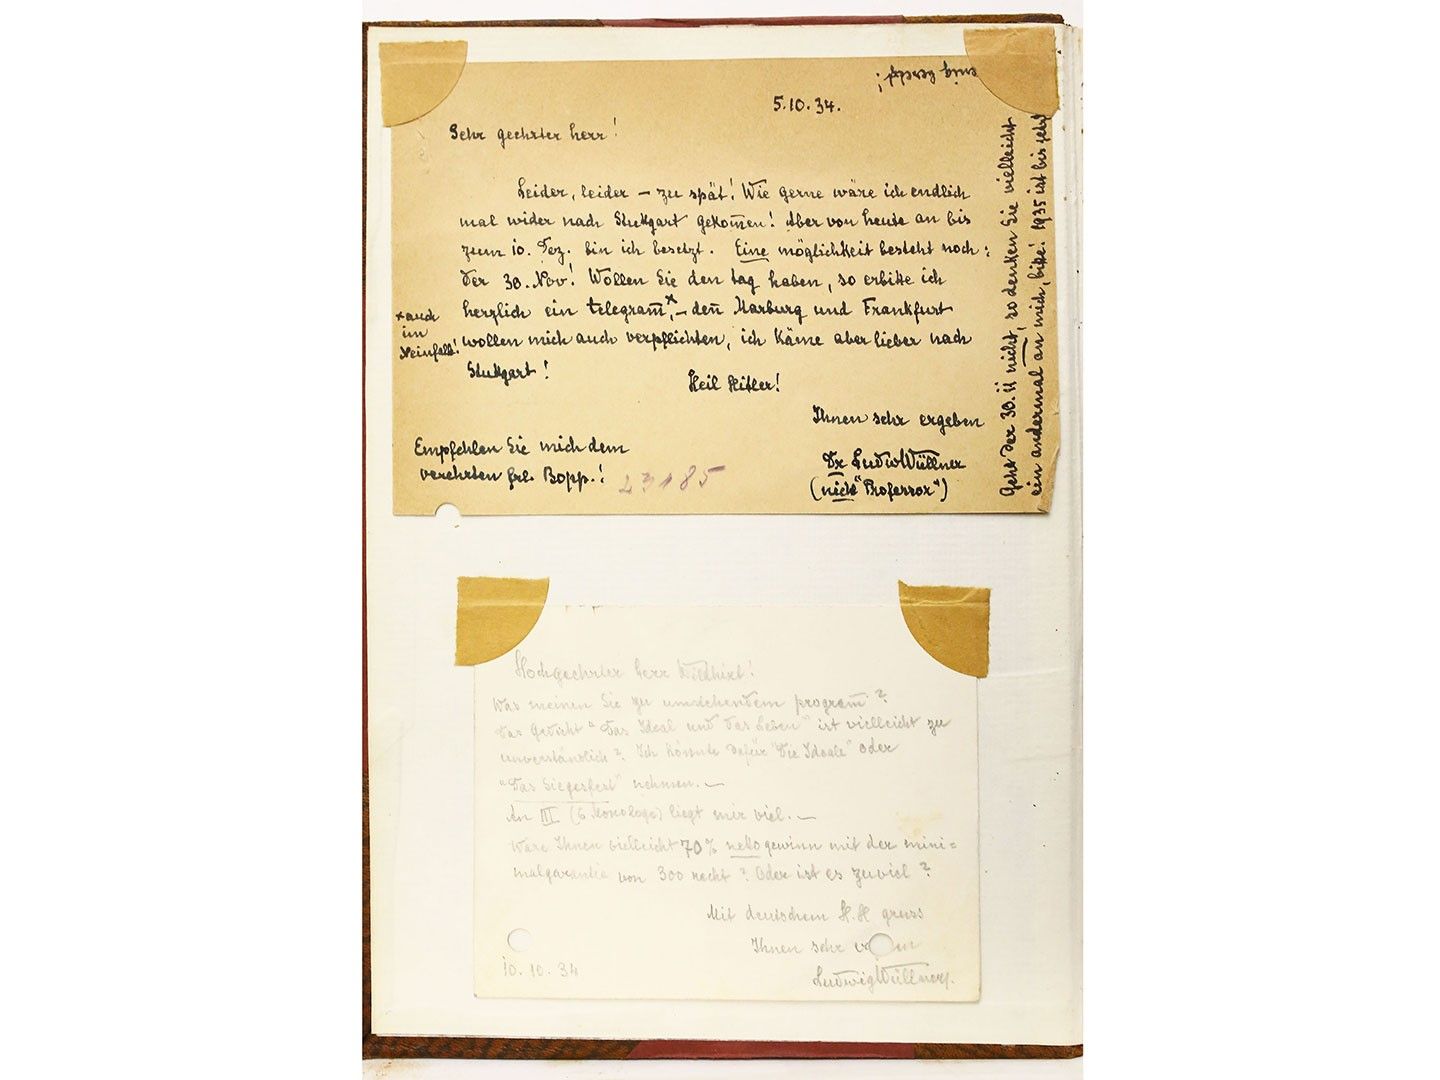 5.10.34.
Sehr geehrter Herr!
Leider, leider – zu spät! Wie gerne wäre ich endlich
mal wider nach Stuttgart gekom̄en! Aber von heute an bis
zum 10. Dez. bin ich besetzt. Eine möglichkeit besteht noch:
Der 30. Nov! Wollen Sie den tag haben, so erbitte ich
herzlich ein telegram̄ˣ, – den̄ Marburg und Frankfurt
wollen mich auch verpflichten, ich käme aber lieber nach
Stuttgart!
x auch
im
Neinfall!
Heil Hitler!
Ihnen sehr ergeben
Dr Ludw Wüllner
(nicht "Professor")
Empfehlen Sie mich dem
verehrten frl. Bopp.!
23185
Geht der 30.11 nicht, so denken Sie vielleicht
ein andermal an mich, bitte! 1935 ist bis jetzt
Hochgeehrter Herr
Was meinen Sie zu umstehendem program̄?
Das Gedicht "Das Ideal und das Leben" ist vielleicht zu
unverständlich? Ich könnte dafür "Die Ideale" oder
"Das Siegesfest" nehmen. –
An III (6 Monologe) liegt mir viel. –
Wäre Ihnen vielleicht 70% netto gewinn mit der mini=
malgarantie von 300 recht? Oder ist es zuviel?
Mit deutschem H.H gruss
Ihnen sehr
10.10.34
Ludwig Wüllner.